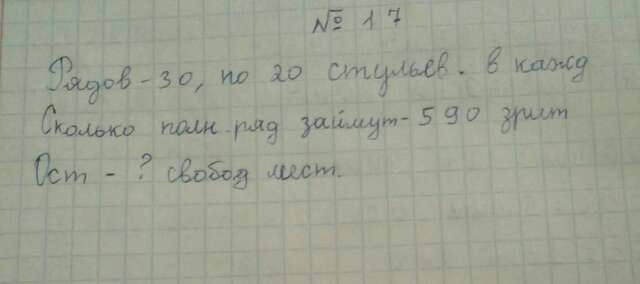 № 17
Рядов - 30, по 20 стульев. в кажд
Сколько полн. ряд займут - 590 зрит
Ост - ? свобод мест.